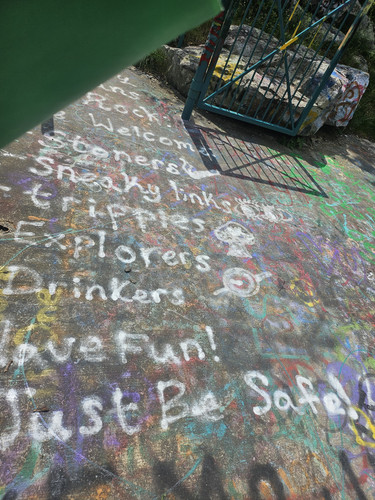 Rock
& Welcom
Stoners
Sneaky links
- trippies
Explorers
Drinkers
have Fun!
Just Be Safe!